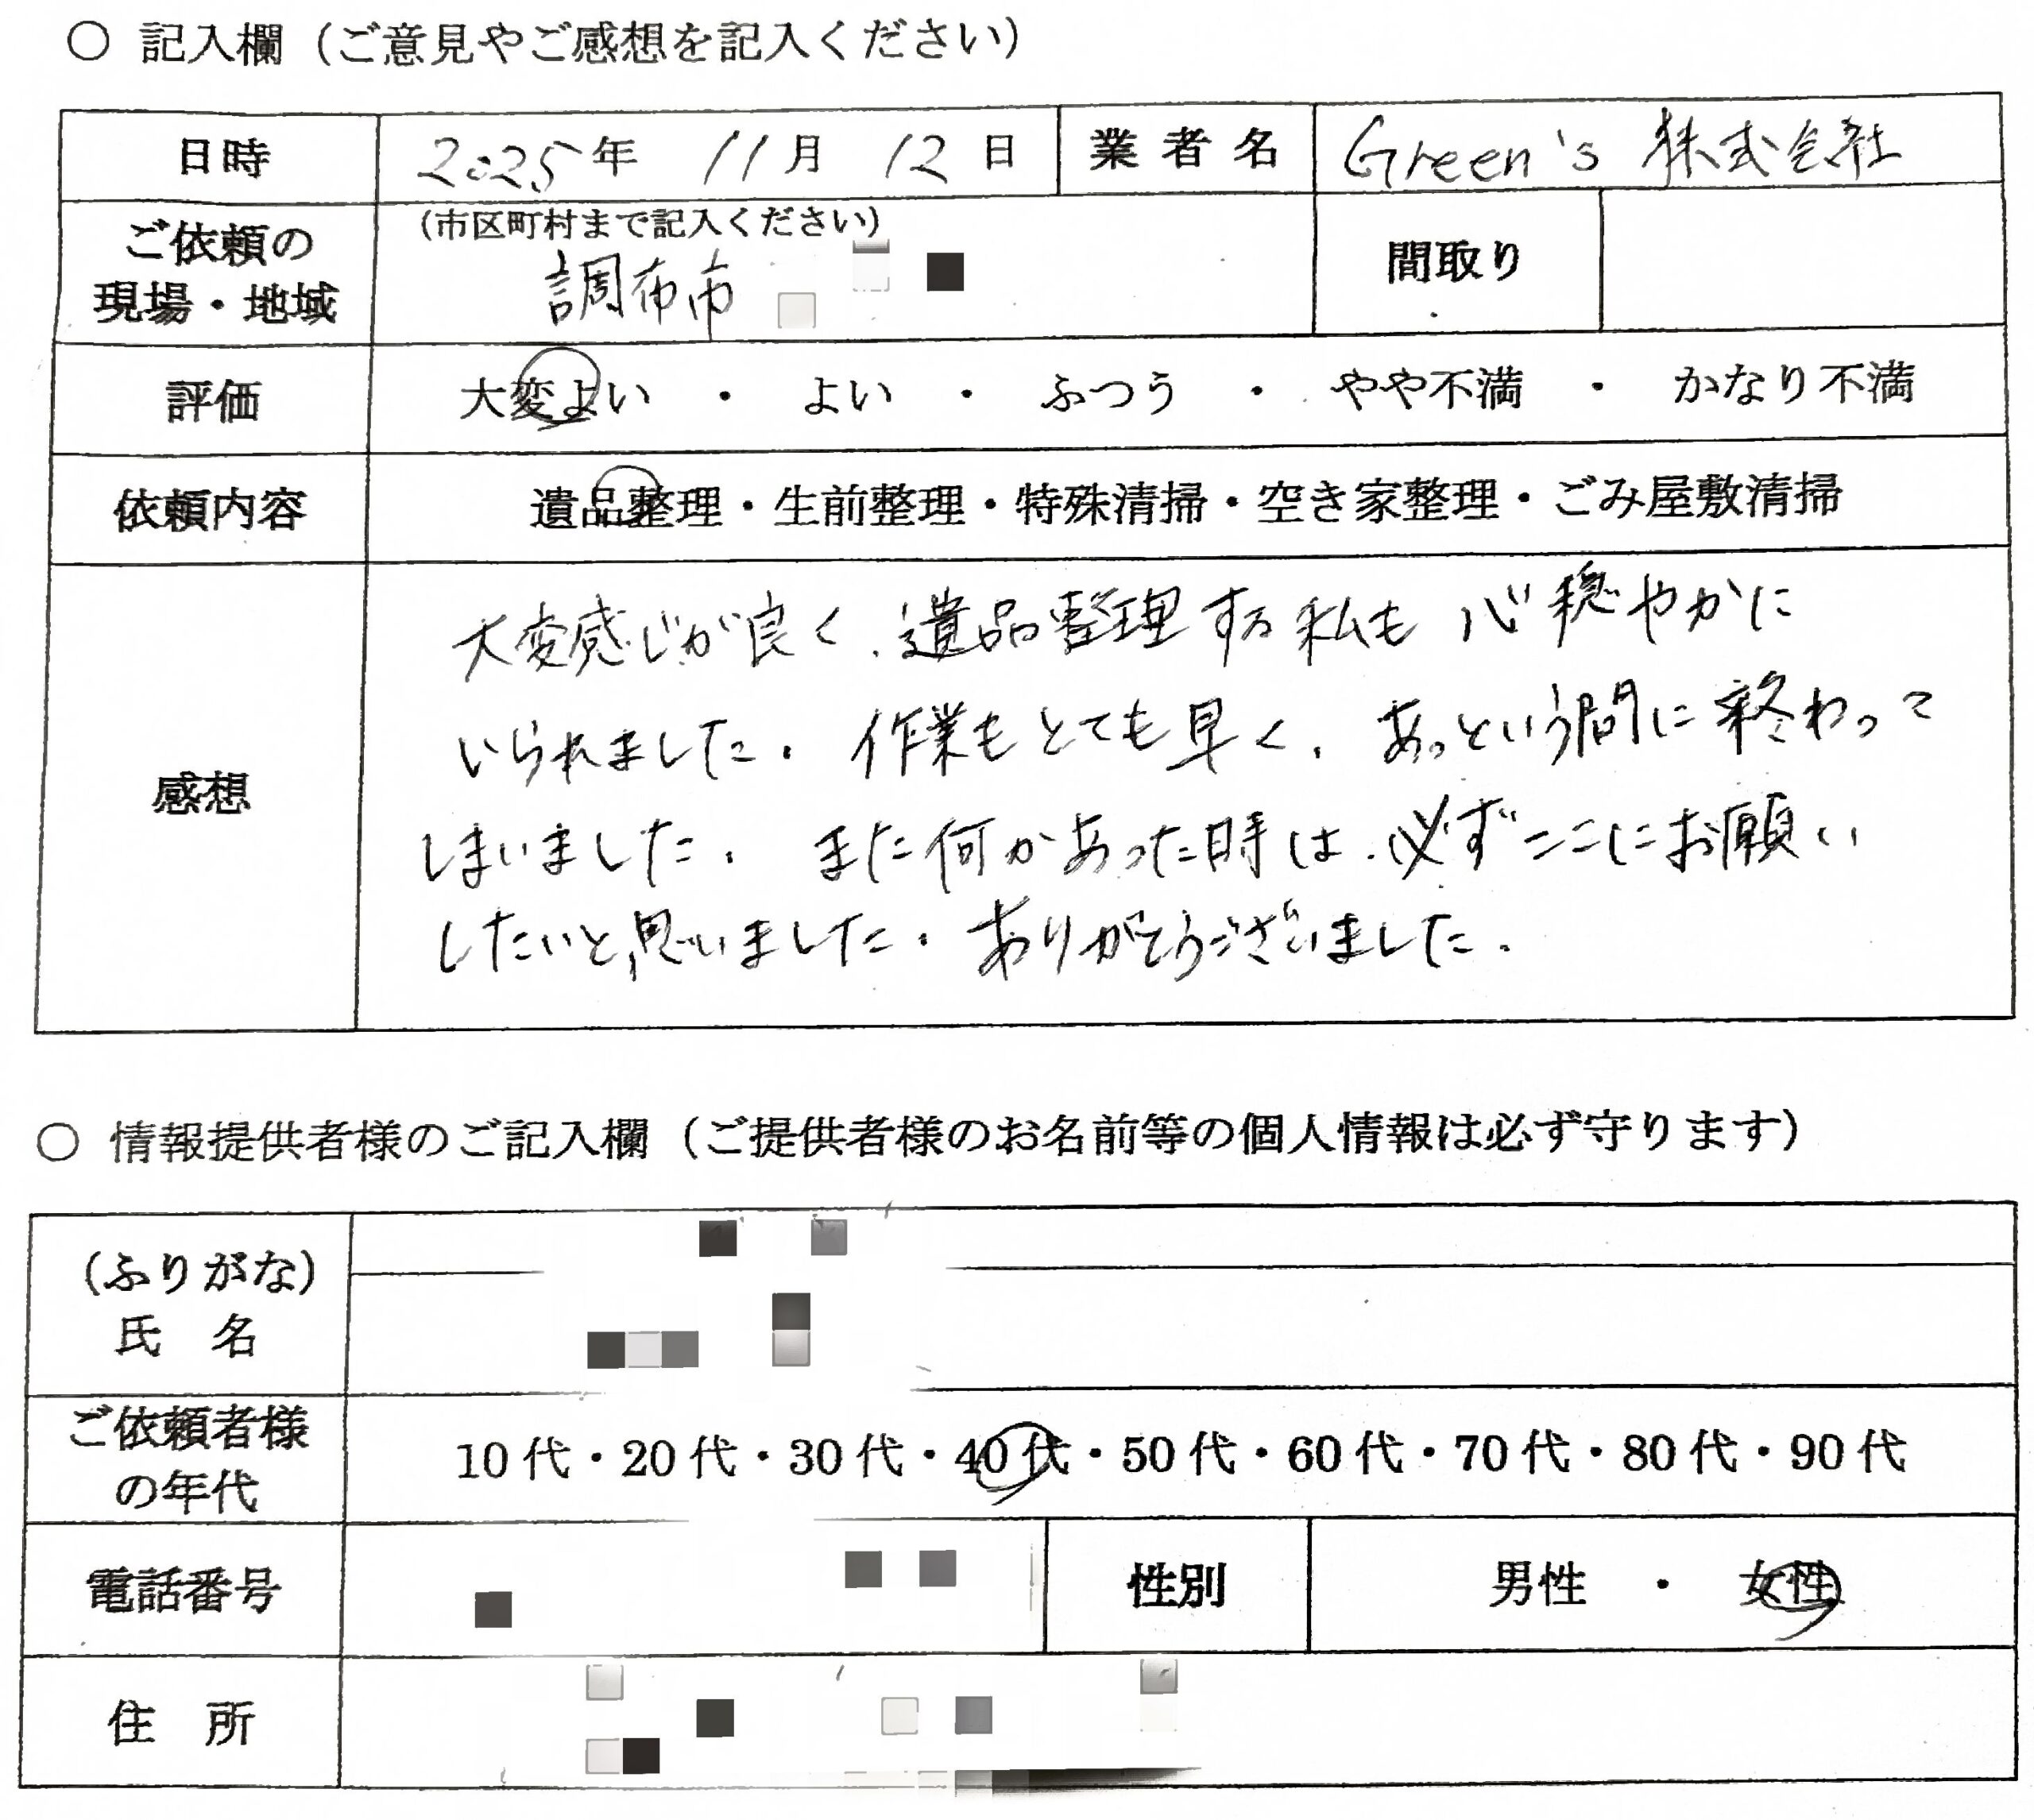 ○ 記入欄（ご意見やご感想を記入ください）
日時 2025年 11月 12日 業者名 Green's 株式会社
ご依頼の現場・地域 (市区町村まで記入ください) 調布市 間取り
評価 大変よい ・ よい ・ ふつう ・ やや不満 ・ かなり不満
依頼内容 遺品整理・生前整理・特殊清掃・空き家整理・ごみ屋敷清掃
感想
大変感じが良く、遺品整理する私も心穏やかに
いられました。作業もとても早く、あっという間に終わって
しまいました。また何かあった時は、必ずここにお願い
したいと思いました。ありがとうございました。
○ 情報提供者様のご記入欄（ご提供者様のお名前等の個人情報は必ず守ります）
（ふりがな）
氏 名
ご依頼者様の年代 10代・20代・30代・40代・50代・60代・70代・80代・90代
電話番号 性別 男性 ・ 女性
住 所